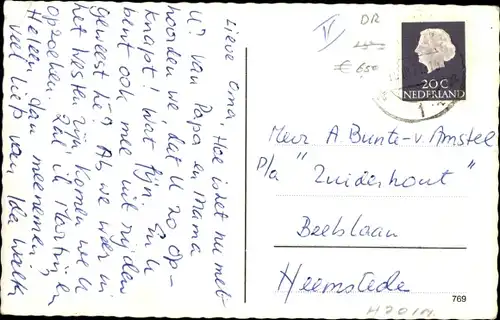 Lieve Oma, Hoe is het nu met
U? Van Papa en Mama
hoorden we dat U zo op-
knapt! Wat fijn. En U
bent ook mee uit rijden
geweest hè? Als we weer in
het Westen zijn komen we U
opzoeken. Zal ik Martin en
Heleen dan meenemen?
veel liefs van Ida
DR
€ 650
20 C
NEDERLAND
Mevr A Bunte-v. Amstel
p/a "Zuiderhout"
Beeklaan
Heemstede
769